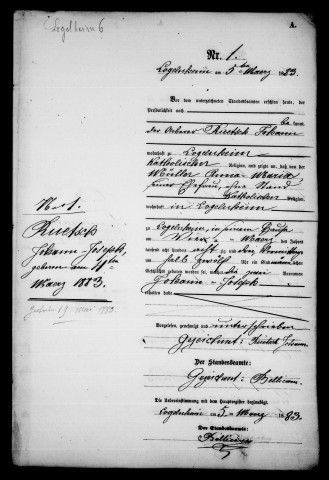 Logelheim 6
A.
Nr. 1.
Logelnheim am 5ten März 1883.
Vor dem unterzeichneten Standesbeamten erschien heute, der
Persönlichkeit nach
be kannt,
der Ackerer Ruetsch Johann
wohnhaft zu Logelnheim
Katholischer Religion, und zeigte an, daß von der
Müller Anna-Maria
seine Ehefrau, ohne Stand
Katholischer Religion,
wohnhaft in Logelnheim
zu Logelnheim, in seinem Hause
am März des Jahres
tausend acht hundert achtzig und drei Vormittags
um halb zwölf Uhr ein Kind männlichen
Geschlechts geboren worden sei, welches die zwei Vornamen
Johann-Joseph
erhalten habe
Vorgelesen, genehmigt und unterschrieben
Gezeichnet: Ruetsch Johann
Der Standesbeamte:
Gezeichnet:
Die Uebereinstimmung mit dem Hauptregister beglaubigt
Logelnheim am 5ten März 1883.
Der Standesbeamte:
No 1.
Ruetsch
Johann-Joseph,
geboren am
März 1883.
1883.